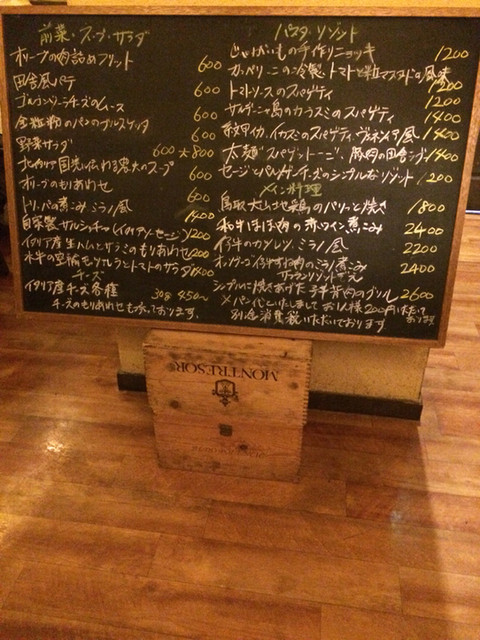 前菜・スープ・サラダ
オリーブの肉詰めフリット 600
田舎風パテ 600
ゴルゴンゾーラチーズのムース 600
全粒粉のパンのブルスケッタ 600
野菜サダ 600 * 800
北イタリア 国境に伝わる の スープ 600
オリーブのもりあわせ 600
トリッパの煮込み ミラノ風 1400
自家製サルシッチャ(イタリアソーセージ) 1200
イタリア産生ハムとサラミのもりあわせ 1200
水牛の モッツァレラとトマトのサラダ 1400
チーズ
イタリア産チーズ各種 30g 450〜
チーズのもりあわせもあります。
パスタ・リゾット
じゃがいもの手作りニョッキ 1200
カッペリーニの冷製 トマトと粒マスタードの風味 1200
トマトソースのスパゲティ 1200
サルデーニャ島のカラスミのスパゲティ 1400
甲イカ、イカスミのスパゲティ ヴェネツィア風 1400
太麺スパゲットーニ、豚肉の田舎 1400
セージとパルメザンチーズのシンプルなリゾット 1200
メイン料理
鳥取大山地鶏のパリッと焼き 1800
和牛ほほ肉の赤ワイン煮こみ 2400
仔牛のカツレツ、ミラノ風 2200
オッソブーコ 仔牛すね肉のミラノ煮こみ 2400
サフランリゾット
シンプルに焼きあげた 仔羊背肉のグリル 2600
×パン代といたしまして お1人様200円いただいております
別途消費税いただいております
MONTRESOR